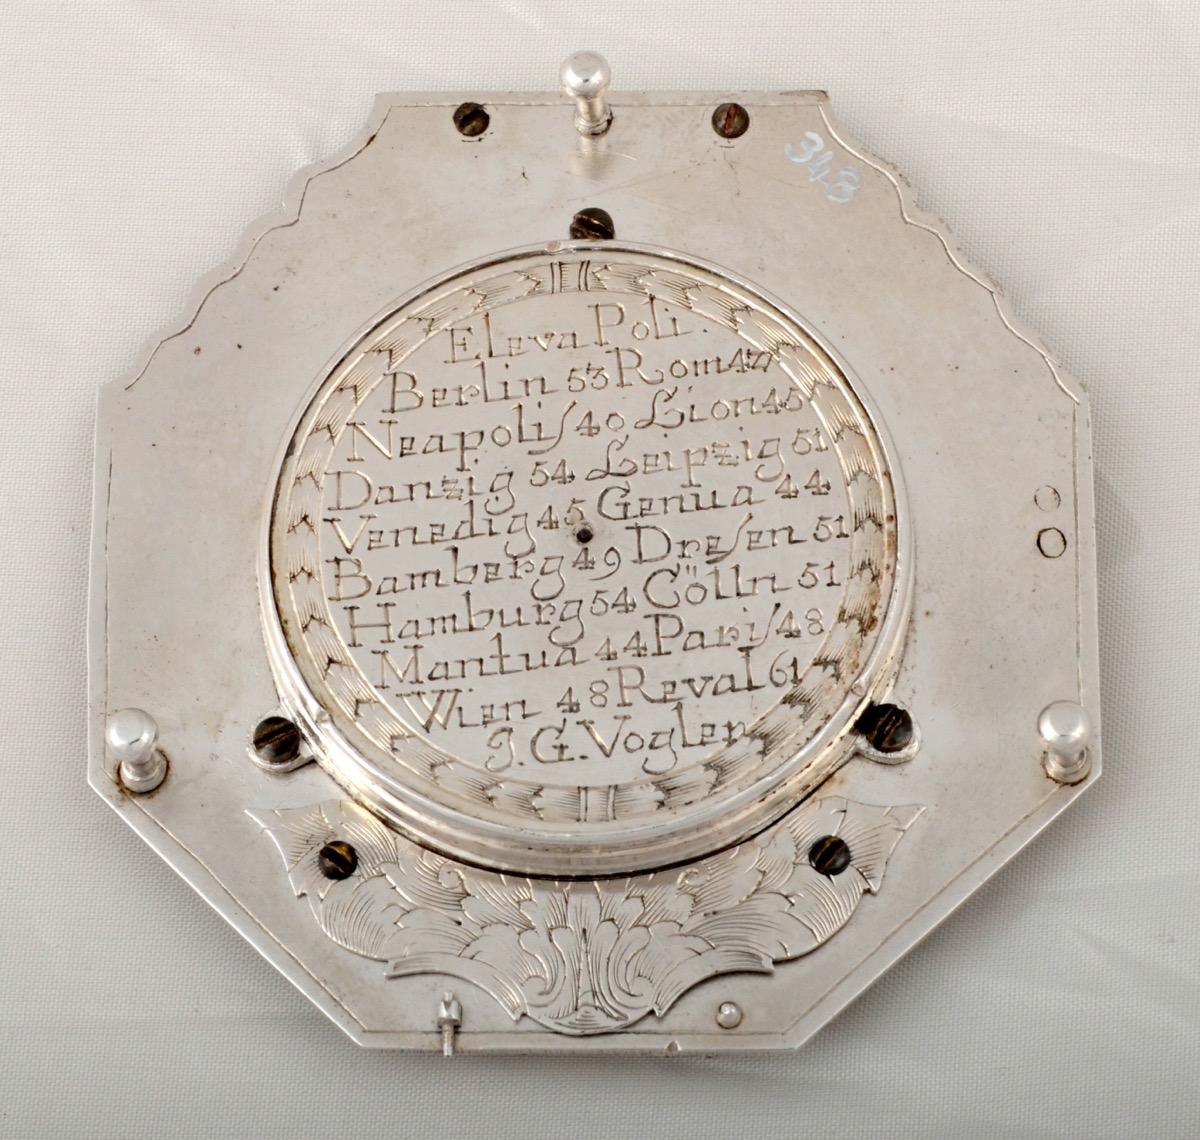 Eleva Poli.
Berlin 53 Rom 42
Neapolis 40 Lion 45
Danzig 54 Leipzig 51
Venedig 45 Genua 44
Bamberg 49 Dresen 51
Hamburg 54 Cölln 51
Mantua 44 Paris 48
Wien 48 Reval 61
J. G. Vogler
348